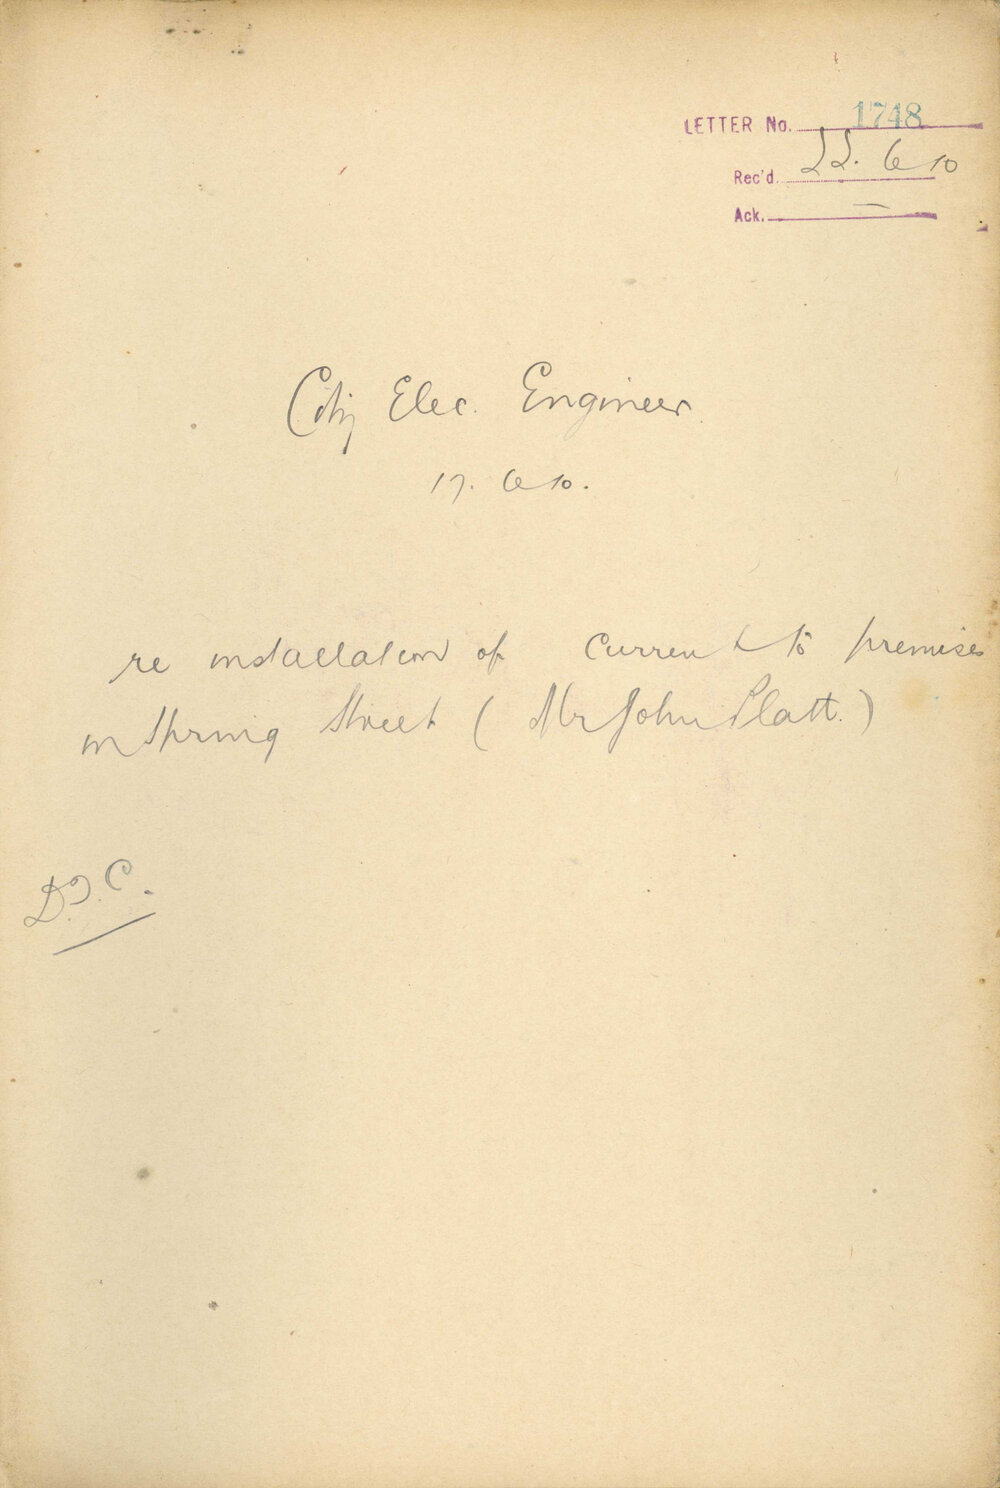 LETTER No. 1748
Rec'd. 22. 6 10
Ack. —
City Elec. Engineer
17. 6 10.
re installation of current to premises
in Spring Street (Mr John Platt.)
D.T.C.